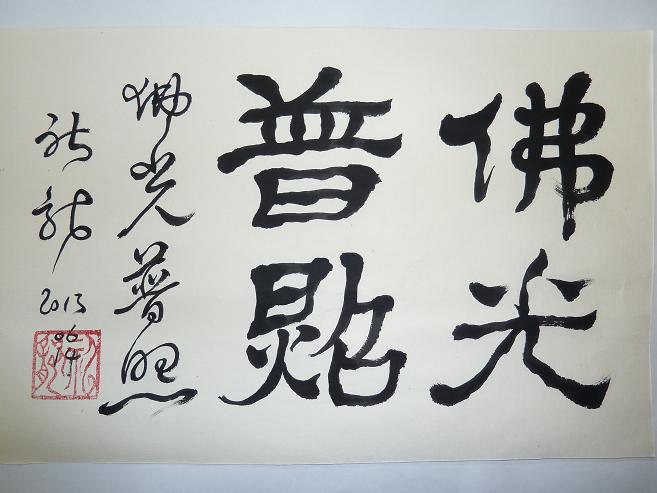 佛光
普照
佛光普照
2013
06
14